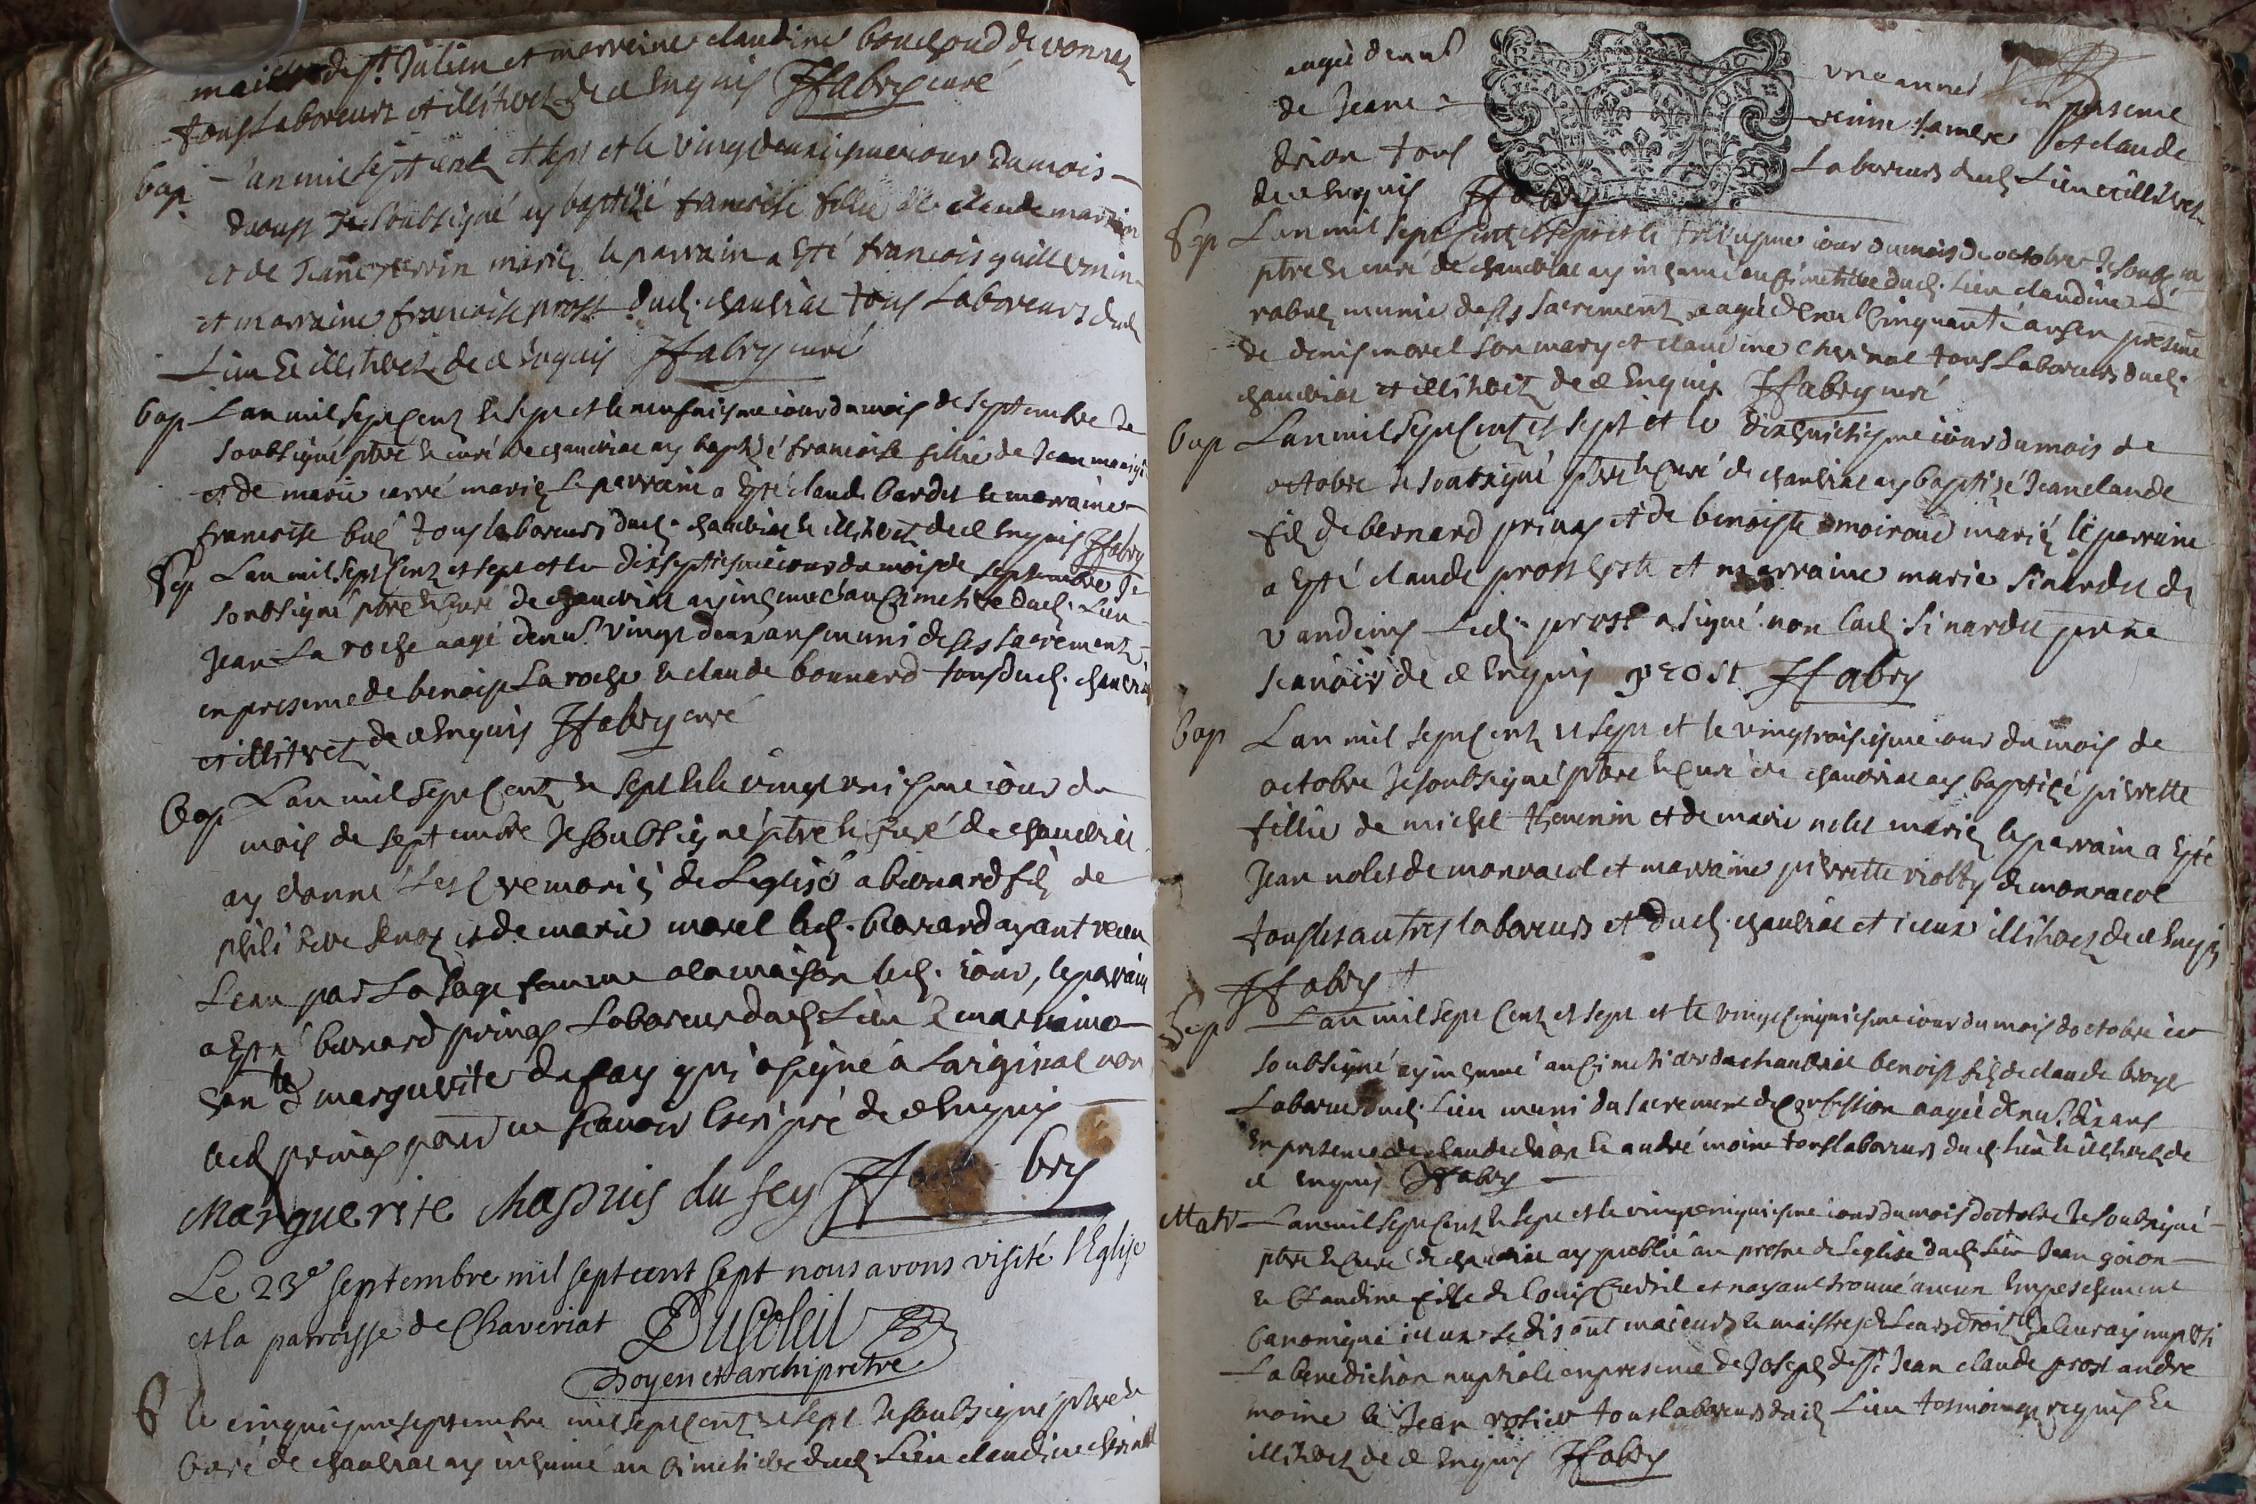 de St Julien et marraine claudine bouchoud de vonnez
tous laboreurs et illitrez de ce enquis JFabry curé
bap Lan mil sept cent et sept et le vingt deuxiesme iour du mois
daoust Je soubsigné ay baptizé francoise fillie de claude
et de Jeanne perrin mariez le parrain a esté francois guillemin
et marraine francoise prost dud. chauvriat tous laboreurs dud
Lieu & illitrez de ce enquis JFabry curé
bap Lan mil sept Cent & sept et le neufuiesme iour du mois de septembre Je
soubsigné ptre & curé de chauvriat ay baptizé francoise fillie de Jean
et de marie carré mariez le parrain a esté claude bardet & marraine
francoise tous laboreurs dud. chauvriat & illitrez de ce enquis JFabry
Sep Lan mil sept Cent et sept et le dixseptiesme iour du mois de septembre Je
soubsigné ptre & Curé de chauvriat ay inhumé au Cimetire dud. Lieu
Jean La roche aagé denv. vingt deux ans muni de ses sacrements
en presence de benoist La roche & claude bonnard tous dud. chauvriat
et illitrez de ce enquis JFabry curé
bap Lan mil sept Cent & sept & le vingt uniesme iour du
mois de septembre Je soubsigné ptre & Curé de chauvriat
ay donné Les Ceremonies de Leglise a bernard filz de
et de marie morel led. bernard ayant receu
Leau par La sage femme a la maison led. iour, le parrain
a esté bernard prinas Laboreur dud Lieu & marraine
marguerite dufay qui a signé a Loriginal non
led prinas pour ne scavoir de ce enquis
Marguerite Chapuis du fey JFabry
Le 23e septembre mil sept cent sept nous avons visité l'Eglise
et la parroisse de Chaveriat DuSoleil
Doyen et archipretre
le cinquiesme septembre mil sept Cent & sept Je soubsigné ptre &
Curé de chauvriat ay inhumé au Cimetire dud. Lieu claudine
aagée denv. une année en presence
de Jeane sa mere et claude
drion tous Laboreurs dud. Lieu & illitrez
de ce enquis JFabry
Sep Lan mil sept Cent et sept et le trezieme iour du mois de octobre Je soubsig
ptre & curé de chauvriat ay inhumé au Cimetire dud. Lieu claudine
munie de ses sacrements aagée denv. Cinquante ans en presence
de denis morel son mary et claudine chevenat tous Laboreurs dud.
chauvriat et illitrez de ce enquis JFabry curé
bap Lan mil sept Cent et sept et le dixhuictiesme iour du mois de
octobre Je soubsigné ptre & Curé de chauvriat ay baptizé Jean claude
filz de bernard prinas et de benoiste moiroud mariez le parrain
a esté claude prost et marraine marie Sinardet de
vandeins Led. prost a signé non lad. Sinardet pr ne
scavoir de ce enquis prost JFabry
bap Lan mil sept Cent et sept et le vingtroisiesme iour du mois de
octobre Je soubsigné ptre & Curé de chauvriat ay baptizé pierrette
fillie de michel thevenin et de marie nolet mariez le parrain a esté
Jean nolet de monracol et marraine pierrette violby de monracol
tous les autres laboreurs et dud. chauvriat et iceux illitrez de ce enquis
JFabry
Sep Lan mil sept Cent et sept et le vingt Cinquiesme iour du mois doctobre ie
soubsigné ay inhumé au Cimetiere de chauvriat benoist filz de claude broyer
Laboreur dud. Lieu muni du sacrement de Confession aagé denv. dix ans
en presence de claude drion & andré moine tous laboreurs dud. lieu & illitrez de
ce enquis JFabry
Matr Lan mil sept Cent & sept et le vingt cinquiesme iour du mois doctobre Je soubsigné
ptre & Curé de chauvriat ay publié au prosne de Leglise dud. Lieu Jean goion
& Claudine fille de Louis et nayant trouué aucun Empeschement
Canonique iceux se disant maieurs & maistres de Leurs droits Je leur ay imparti
La benediction nuptiale en presence de Joseph de St Jean claude prost andre
moine & Jean rosier tous laboreurs dud. Lieu tesmoins requis &
illitrez de ce enquis JFabry